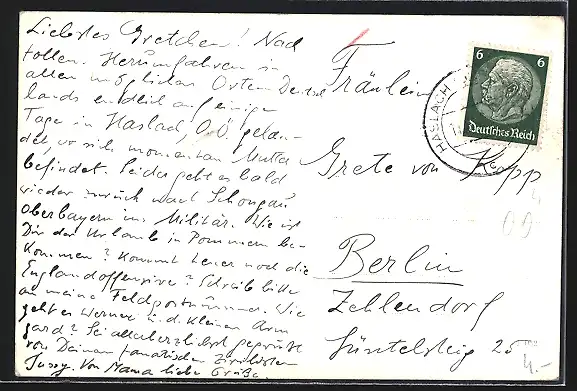 Liebstes Gretchen! Nach
tollen Herumfahren in
allen möglichen Orten Deutsch
lands endlich auf einige
Tage in Haslach, O.Ö. gelan-
det, wo sich momentan Mutta
befindet. Leider geht es bald
wieder zurück nach Schongau
Oberbayern ins Militär. Wie ist
Dir der Urlaub in Pommern be-
kommen? Kommt heuer noch die
Englandoffensive? Schreib bitte
an meine Feldpostnummer. Wie
geht es Werner u. d. kleinen
Sei allerherzlichst gegrüßt
von Deinem fanatischen Zivilisten
Von Mama liebe Grüße
Fräulein
Grete von Kopp
Berlin
Zehlendorf
25
HASLACH
6 6
Deutsches Reich
4.-